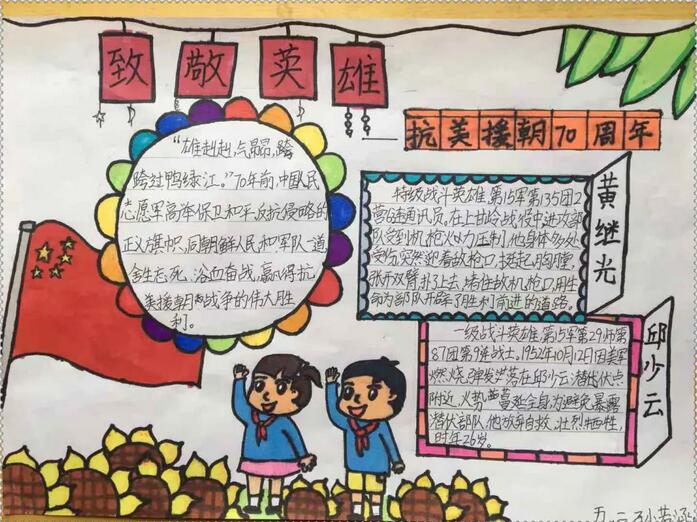 致敬英雄
抗美援朝70周年
"雄赳赳,气昂昂,跨
跨过鸭绿江。"70年前,中国人民
志愿军高举保卫和平,反抗侵略的
正义旗帜,同朝鲜人民和军队一道,
舍生忘死,浴血奋战,赢得抗
美援朝战争的伟大胜
利。
黄继光
特级战斗英雄,第15军第135团2
营6连通讯员,在上甘岭战役中进攻部
队受到机枪火力压制,他身体多处
突然迎着敌枪口,挺起胸膛,
张开双臂扑了上去,堵住敌机枪口,用生
命为部队开辟了胜利前进的道路。
邱少云
一级战斗英雄,第15军第29师第
87团第9连战士,1952年10月12日因美军
燃烧弹发落在邱少云潜伏点
附近,火势蔓延全身,为避免暴露
潜伏部队,他放弃自救,壮烈牺牲,
时年26岁。
五、二